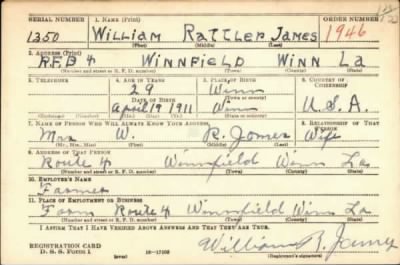 SERIAL NUMBER 1. NAME (Print) ORDER NUMBER
1350 William Rattler James 1946
(First) (Middle) (Last)
2. ADDRESS (Print)
RFD 4 Winnfield Winn La
(Number and street or R. F. D. number) (Town) (County) (State)
3. TELEPHONE 4. AGE IN YEARS 5. PLACE OF BIRTH 6. COUNTRY OF CITIZENSHIP
29 Winn
DATE OF BIRTH (Town or county)
April 19 1911 Winn U.S.A.
(Exchange) (Number) (Mo.) (Day) (Yr.) (State or country)
7. NAME OF PERSON WHO WILL ALWAYS KNOW YOUR ADDRESS 8. RELATIONSHIP OF THAT PERSON
Mrs W. R. James Wife
(Mr., Mrs., Miss) (First) (Middle) (Last)
9. ADDRESS OF THAT PERSON
Route 4 Winnfield Winn La
(Number and street or R. F. D. number) (Town) (County) (State)
10. EMPLOYER'S NAME
Farmer
11. PLACE OF EMPLOYMENT OR BUSINESS
Farm Route 4 Winnfield Winn La
(Number and street or R. F. D. number) (Town) (County) (State)
I AFFIRM THAT I HAVE VERIFIED ABOVE ANSWERS AND THAT THEY ARE TRUE.
REGISTRATION CARD
D. S. S. Form 1 16-17105 William R. James
(over) (Registrant's signature)